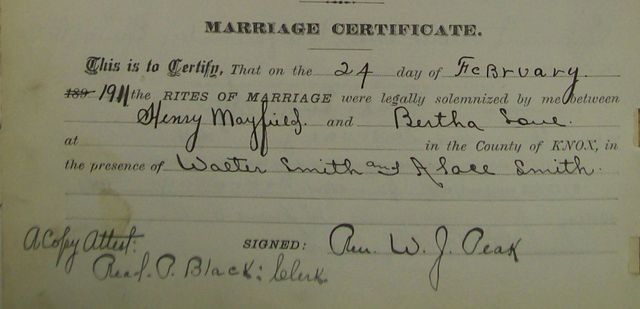 MARRIAGE CERTIFICATE.
This is to Certify, That on the 24 day of February.
189 1911 the RITES OF MARRIAGE were legally solemnized by me between
Henry Mayfield. and Bertha
at in the County of KNOX, in
the presence of Walter Smith and Smith.
A Copy Attest: SIGNED: Rev. W. J. Peak
Read. P. Black: Clerk